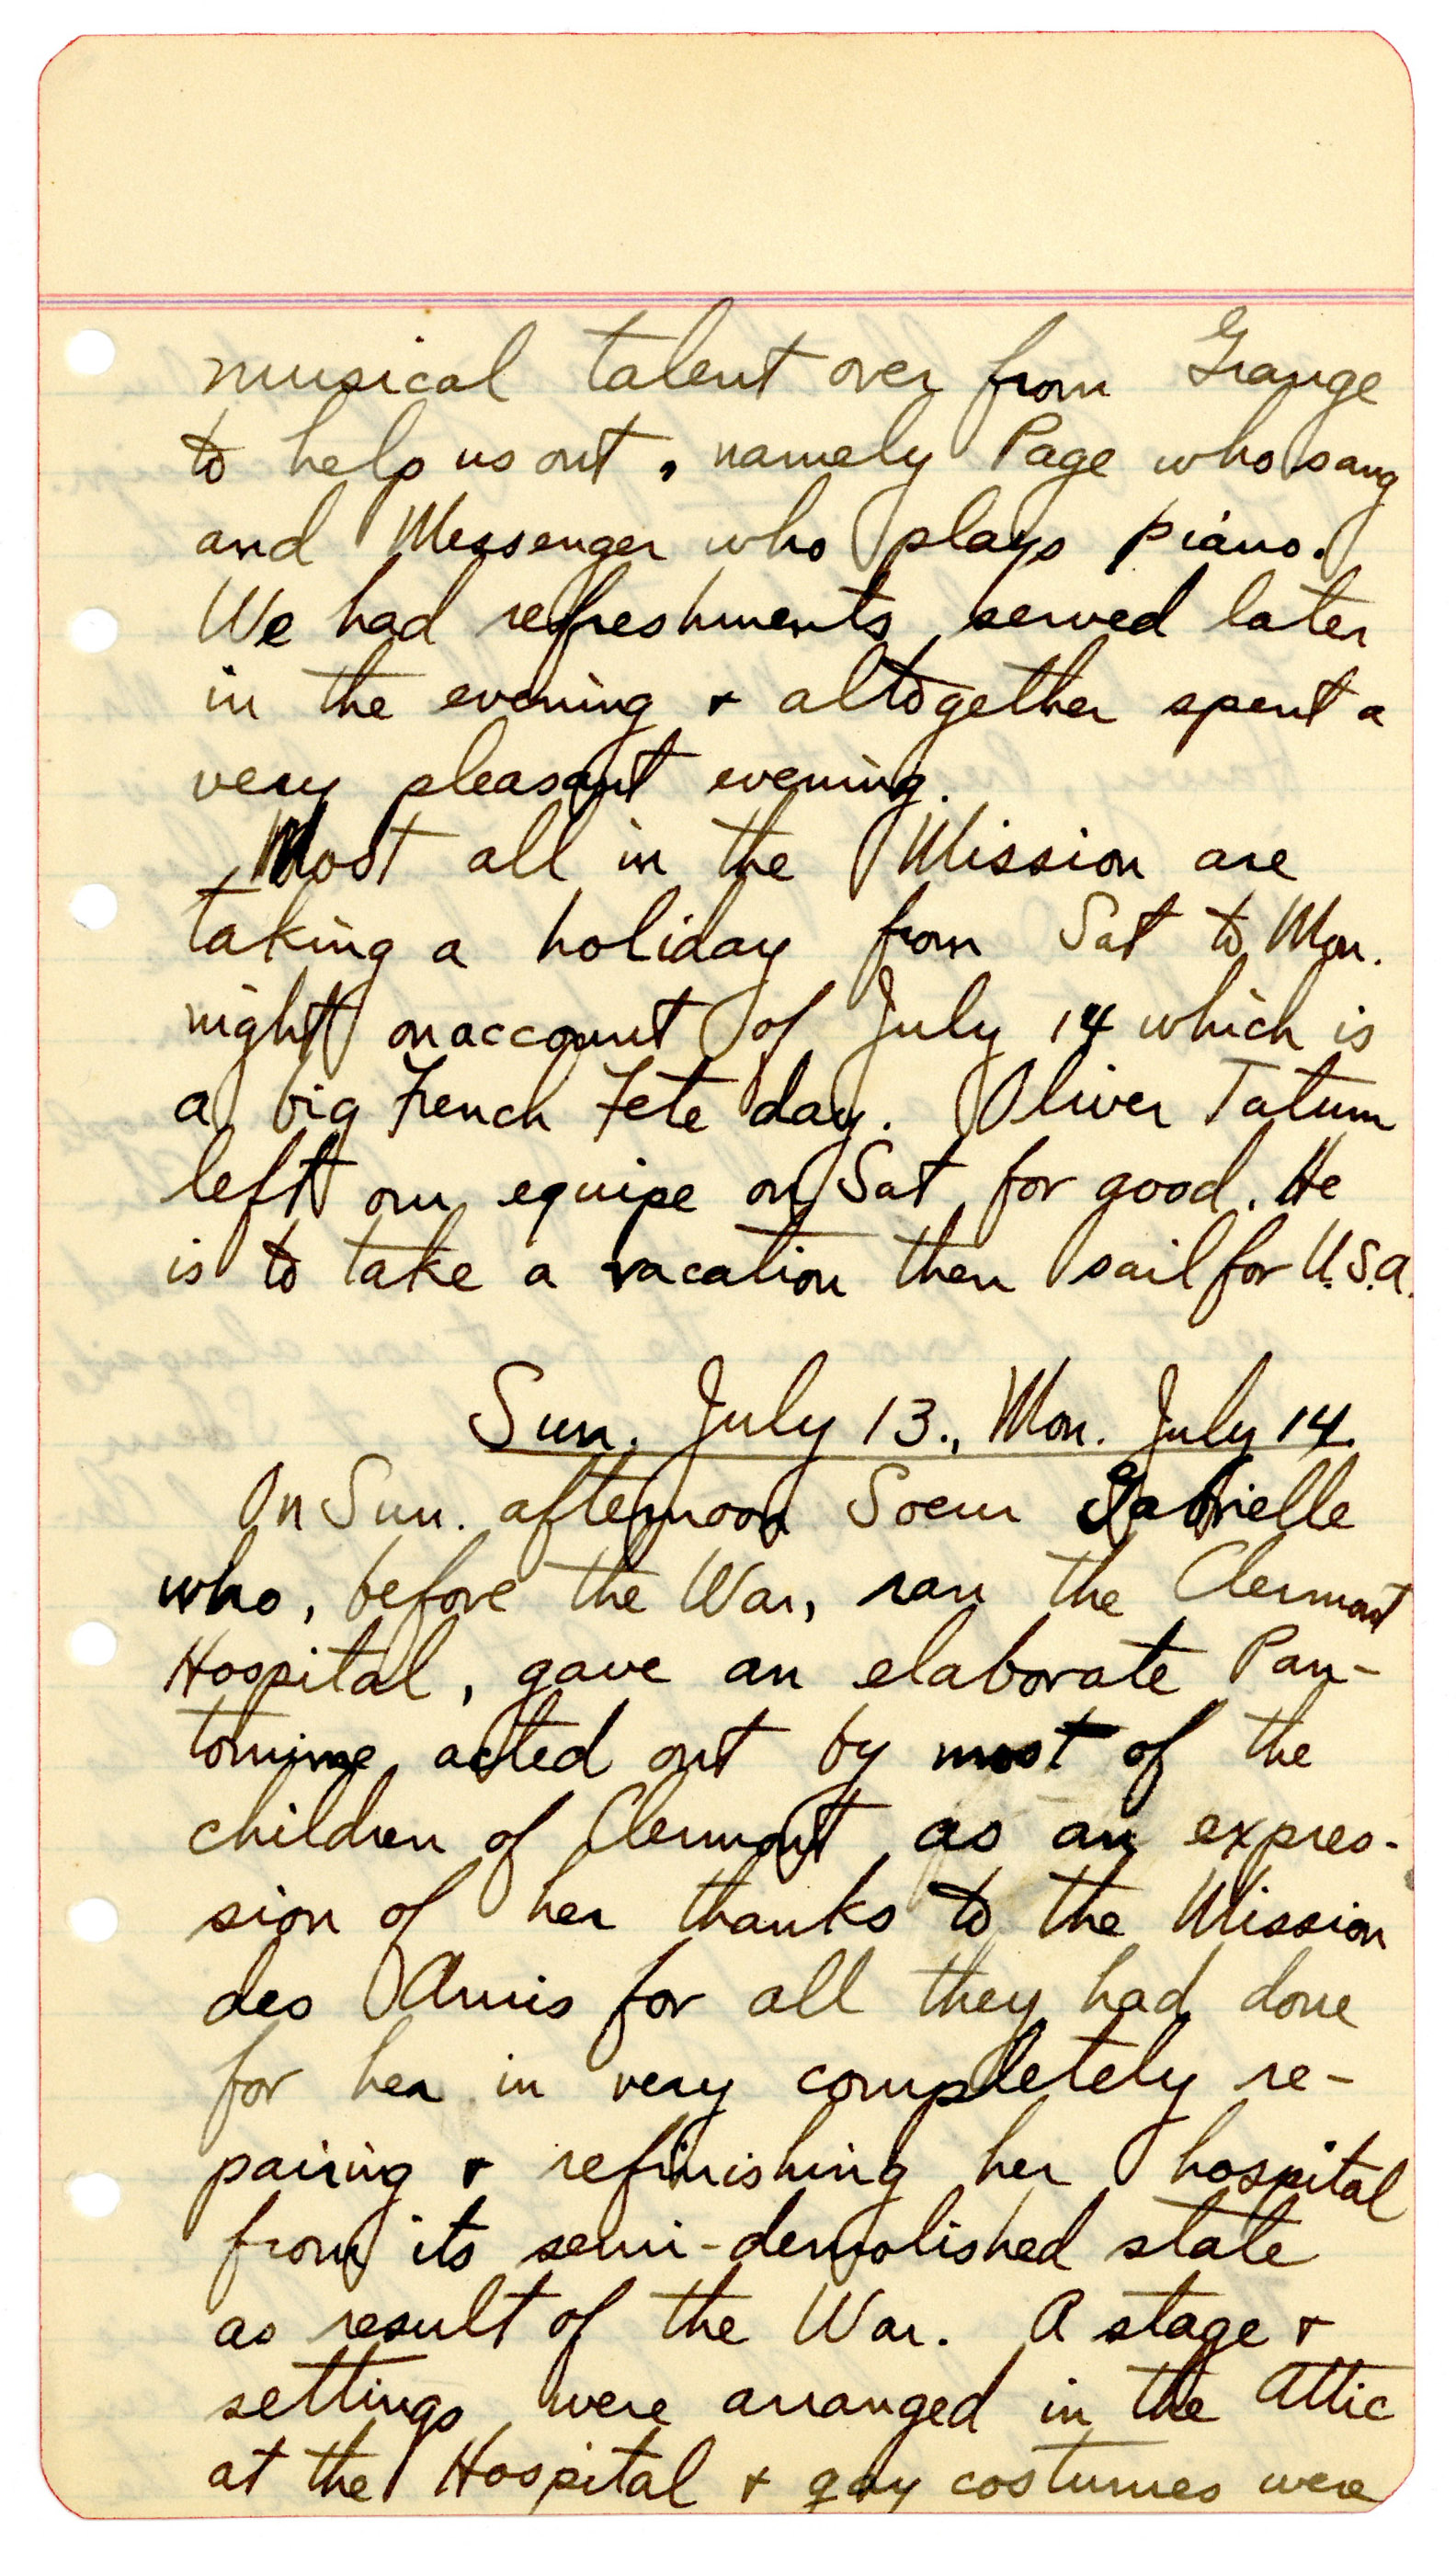 musical talent over from Grange
to help us out, namely Page who sang
and Messenger who plays piano.
We had refreshments served later
in the evening & altogether spent a
very pleasant evening.
Most all in the Mission are
taking a holiday from Sat to Mon.
night on account of July 14 which is
a big French Fete day. Oliver Tatum
left our equipe on Sat for good. He
is to take a vacation then sail for U.S.A.
Sun. July 13., Mon. July 14.
On Sun. afternoon Soeur Gabrielle
who, before the War, ran the Clermont
Hospital, gave an elaborate Pan-
tomime acted out by most of the
children of Clermont as an expres-
sion of her thanks to the Mission
des Amis for all they had done
for her in very completely re-
pairing & refinishing her hospital
from its semi-demolished state
as result of the War. A stage &
settings were arranged in the attic
at the Hospital & gay costumes were